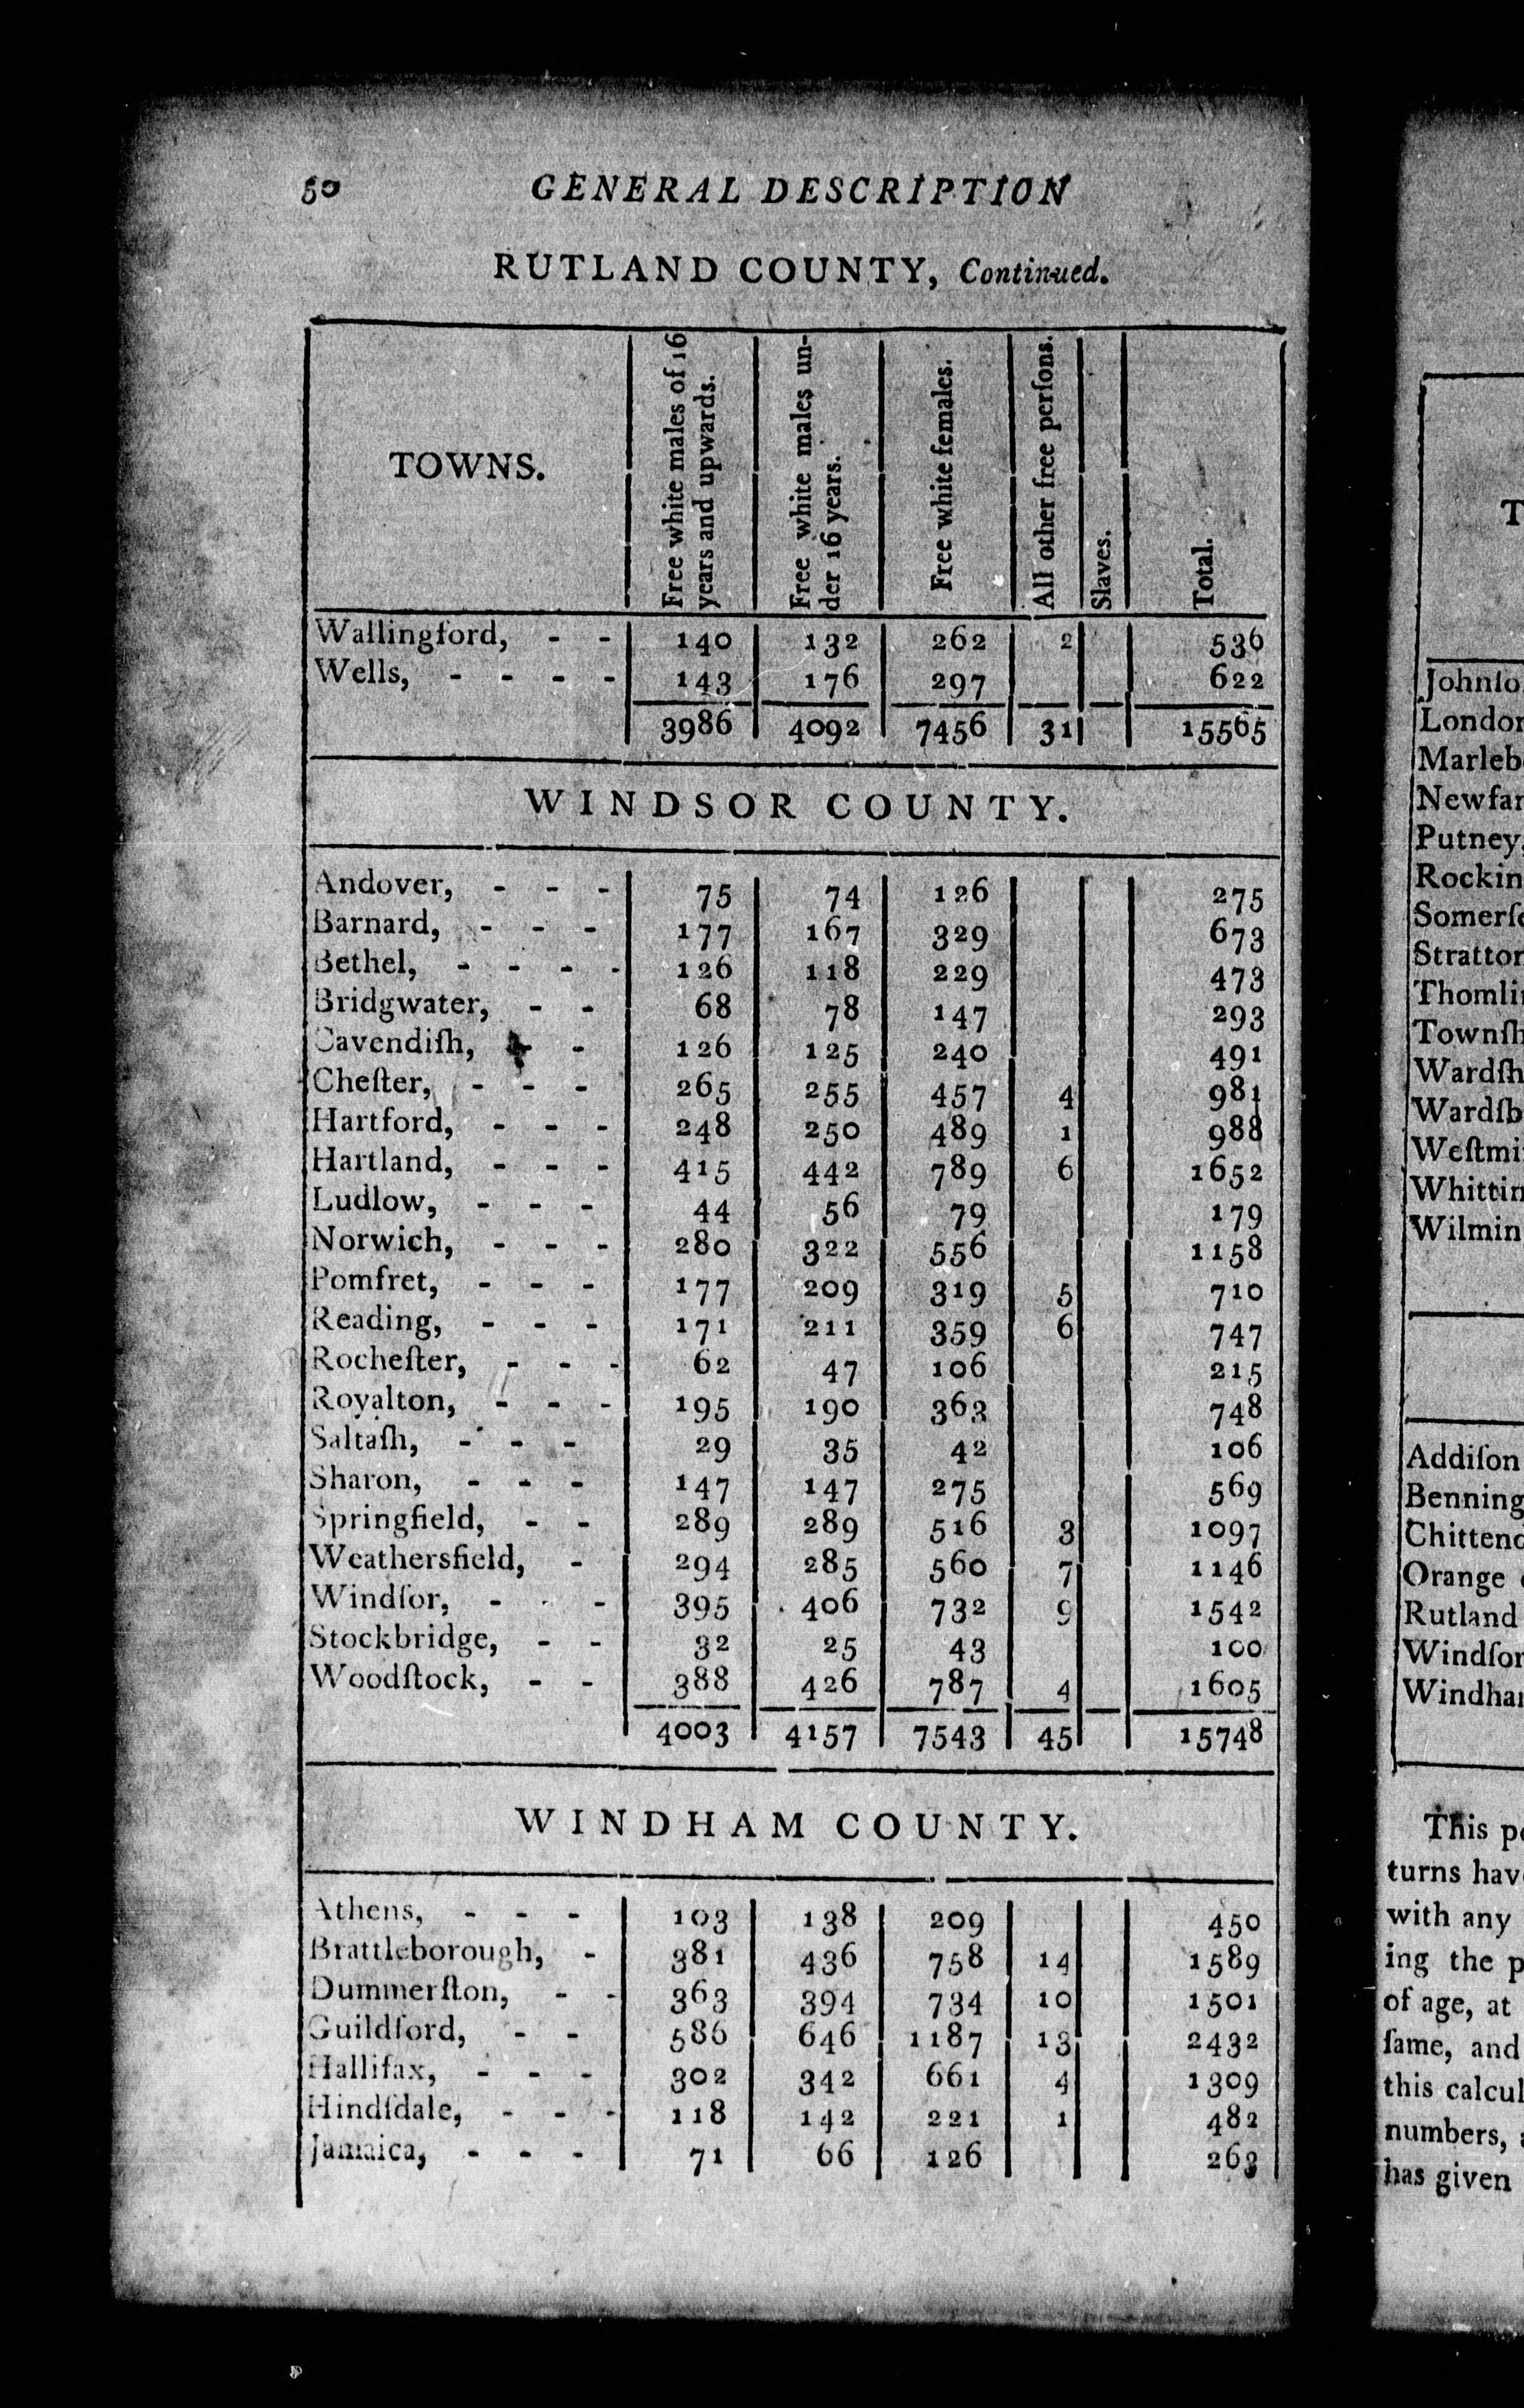 50 GENERAL DESCRIPTION
RUTLAND COUNTY, Continued.
TOWNS.
Free white males of 16
years and upwards.
Free white males un-
der 16 years.
Free white females.
All other free perſons.
Slaves.
Total.
Wallingford, - - 140 132 262 2 536
Wells, - - - - 143 176 297 622
3986 4092 7456 31 15565
WINDSOR COUNTY.
Andover, - - - 75 74 126 275
Barnard, - - - 177 167 329 673
Bethel, - - - - 126 118 229 473
Bridgwater, - - 68 78 147 293
Cavendiſh, - - 126 125 240 491
Cheſter, - - - 265 255 457 4 981
Hartford, - - - 248 250 489 1 988
Hartland, - - - 415 442 789 6 1652
Ludlow, - - - 44 56 79 179
Norwich, - - - 280 322 556 1158
Pomfret, - - - 177 209 319 5 710
Reading, - - - 171 211 359 6 747
Rocheſter, - - - 62 47 106 215
Royalton, - - - 195 190 363 748
Saltaſh, - - - 29 35 42 106
Sharon, - - - 147 147 275 569
Springfield, - - 289 289 516 3 1097
Weathersfield, - 294 285 560 7 1146
Windſor, - - - 395 406 732 9 1542
Stockbridge, - - 32 25 43 100
Woodſtock, - - 388 426 787 4 1605
4003 4157 7543 45 15748
WINDHAM COUNTY.
Athens, - - - 103 138 209 450
Brattleborough, - 381 436 758 14 1589
Dummerſton, - - 363 394 734 10 1501
Guildford, - - 586 646 1187 13 2432
Hallifax, - - - 302 342 661 4 1309
Hindſdale, - - - 118 142 221 1 482
Jamaica, - - - 71 66 126 263
T
Johnſo
London
Marleb
Newfan
Putney,
Rockin
Somerſe
Stratton
Thomlin
Townſh
Wardſh
Wardſb
Weſtmi
Whittin
Wilmin
Addiſon
Benning
Chittend
Orange
Rutland
Windſor
Windha
This p
turns hav
with any
ing the p
of age, at
ſame, and
this calcul
numbers,
has given